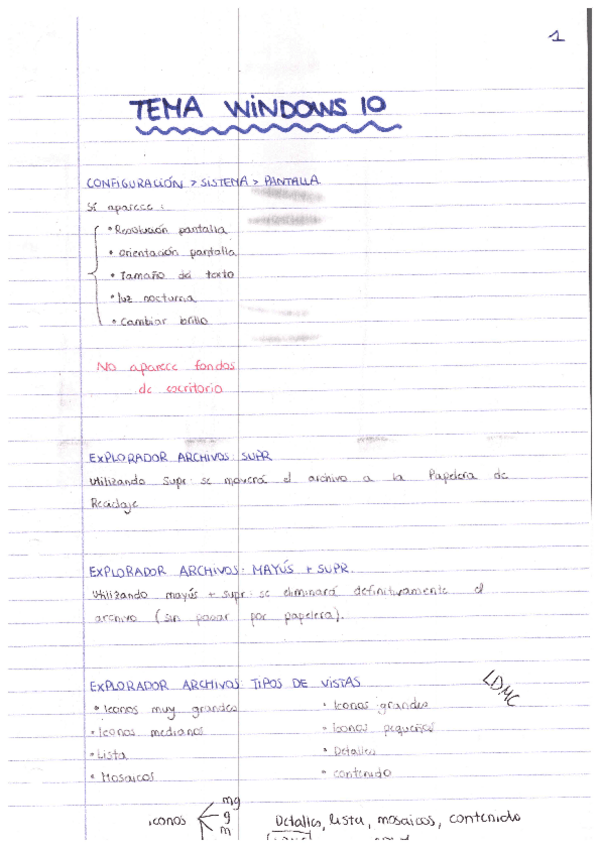 1
TEMA WINDOWS 10
CONFIGURACIÓN > SISTEMA > PANTALLA
Sí aparece:
• Resolución pantalla
• Orientación pantalla
• Tamaño del texto
• luz nocturna
• Cambiar brillo
No aparece fondos
de escritorio
EXPLORADOR ARCHIVOS: SUPR
Utilizando Supr: se moverá el archivo a la Papelera de
Reciclaje
EXPLORADOR ARCHIVOS: MAYÚS + SUPR.
Utilizando mayús + supr: se eliminará definitivamente el
archivo (sin pasar por papelera).
EXPLORADOR ARCHIVOS: TIPOS DE VISTAS
LDMC
• Iconos muy grandes • Iconos grandes
• Iconos medianos • iconos pequeños
• Lista • Detalles
• Mosaicos • contenido
iconos mg
g
m
Detalles, lista, mosaicos, contenido